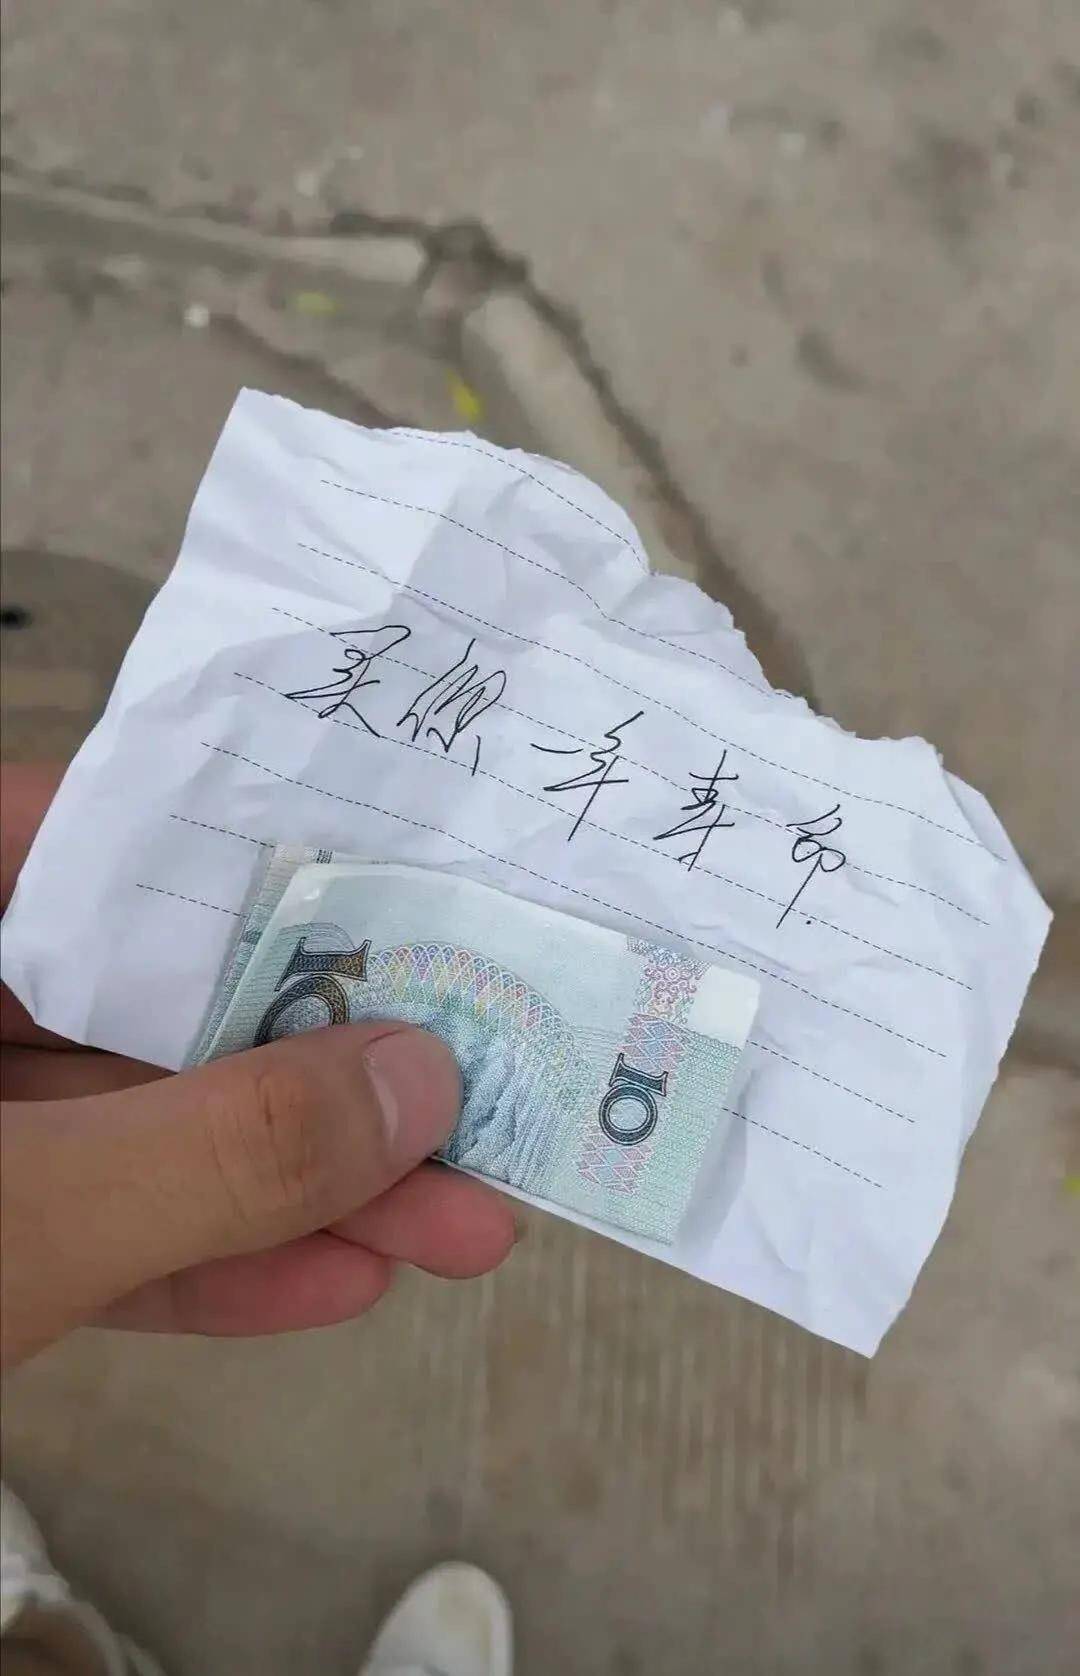 买你一年寿命.
10
10